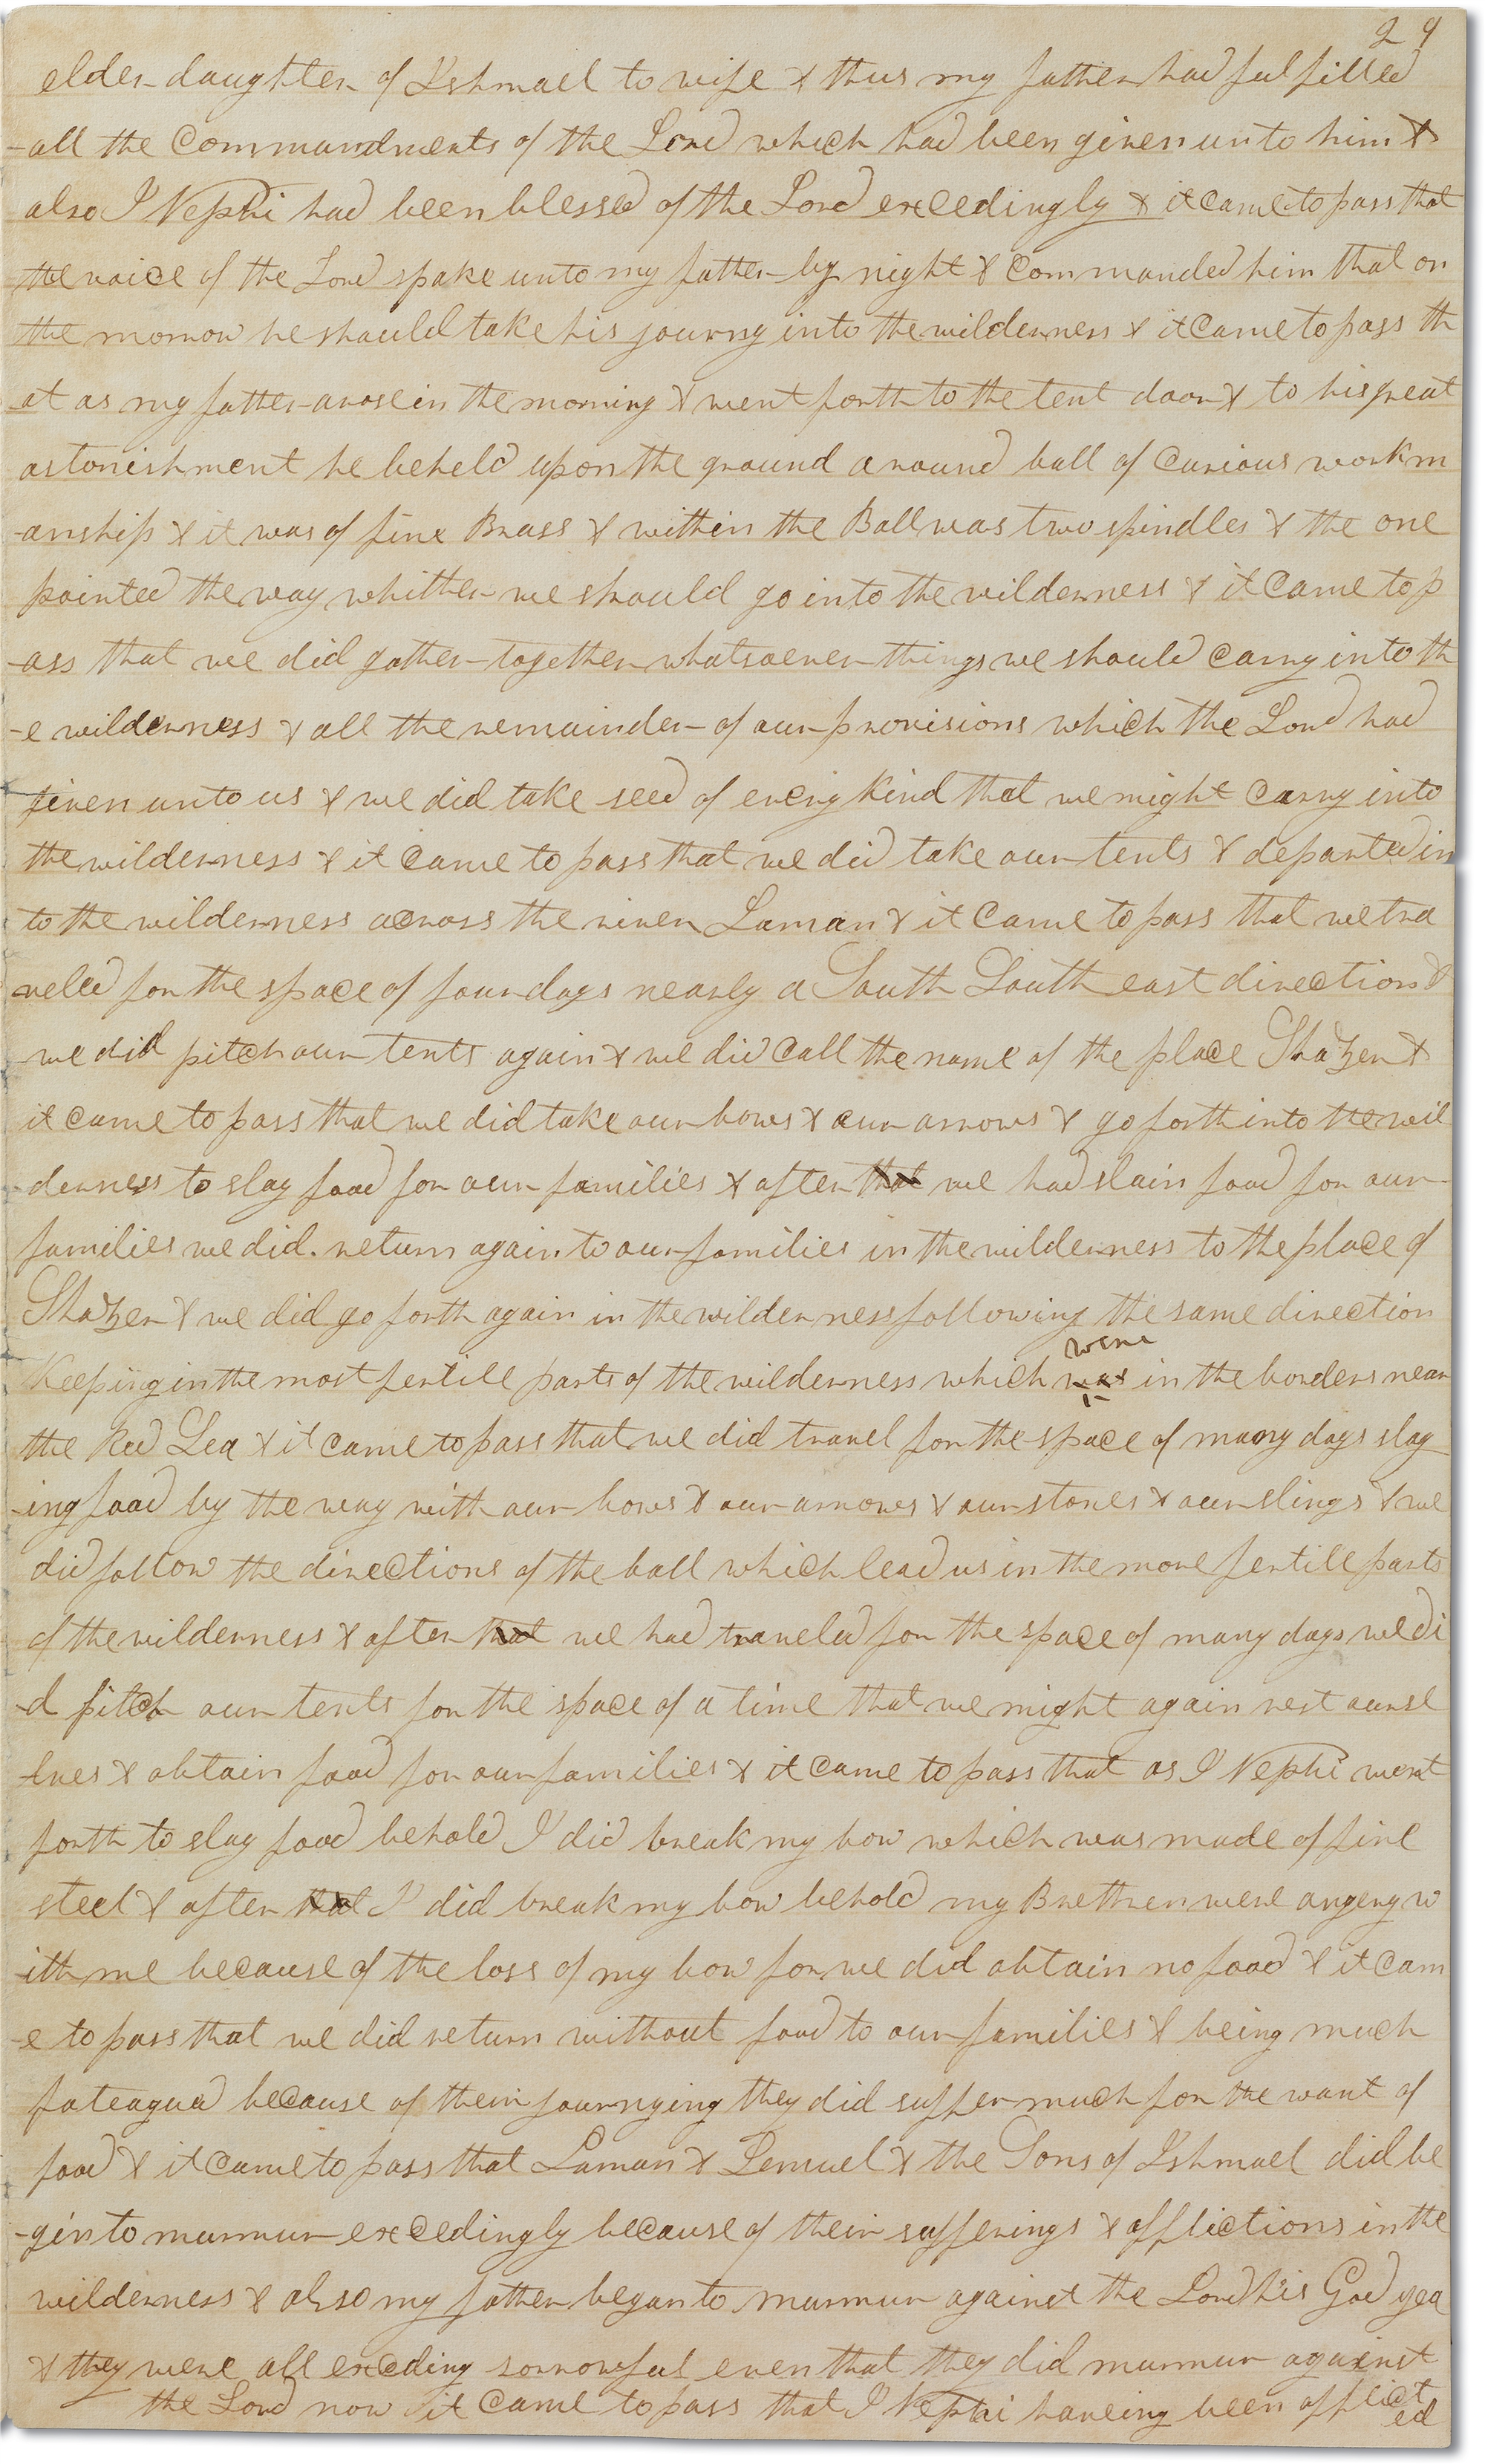 29
elder daughter of Ishmael to wife & thus my father had fulfilled
-all the Commandments of the Lord which had been given unto him &
also I Nephi had been blessed of the Lord excedingly & it came to pass that
the voice of the Lord spake unto my father by night & Commanded him that on
the morrow he should take his journy into the wilderness & it Came to pass th
-at as my father arose in the morning & went forth to the tent door & to his great
astonishment he beheld upon the ground a round ball of Curious workm
-anship & it was of fine Brass & within the Ball was two spindles & the one
pointed the way whither we should go into the wilderness & it Came to p
-ass that we did gather together whatsoever things we should Carry into th
-e wilderness & all the remainder of our provisions which the Lord had
given unto us & we did take seed of every kind that we might Carry into
the wilderness & it Came to pass that we did take our tents & departed in
to the wilderness across the river Laman & it Came to pass that we tra
veled for the space of four days nearly a South South east direction &
we did pitch our tents again & we did Call the name of the place Shazer &
it came to pass that we did take our bows & our arrows & go forth into the wil
-derness to slay food for our families & after that we had slain food for our
families we did. return again to our families in the wilderness to the place of
Shazer & we did go forth again in the wilderness following the same direction
were
Keeping in the most fertill parts of the wilderness which was in the borders near
the Red Sea & it came to pass that we did travel for the space of many days slay
-ing food by the way with our bows & our arrows & our stones & our slings & we
did follow the directions of the ball which lead us in the more fertill parts
of the wilderness & after that we had traveled for the space of many days we di
-d pitch our tents for the space of a time that we might again rest oursel
lves & obtain food for our families & it came to pass that as I Nephi went
forth to slay food behold I did break my bow which was made of fine
steel & after that I did break my bow behold my Brethren were angery w
-ith me because of the loss of my bow for we did obtain no food & it cam
-e to pass that we did return without food to our families & being much
fateagued because of their journying they did suffer much for the want of
food & it came to pass that Laman & Lemuel & the Sons of Ishmael did be
-gin to murmur excedingly because of their sufferings & afflictions in the
wilderness & also my father began to murmur against the Lord his God yea
& they were all exceding sorrowful even that they did murmur against
the Lord now it Came to pass that I Nephi haveing been afflict
ed